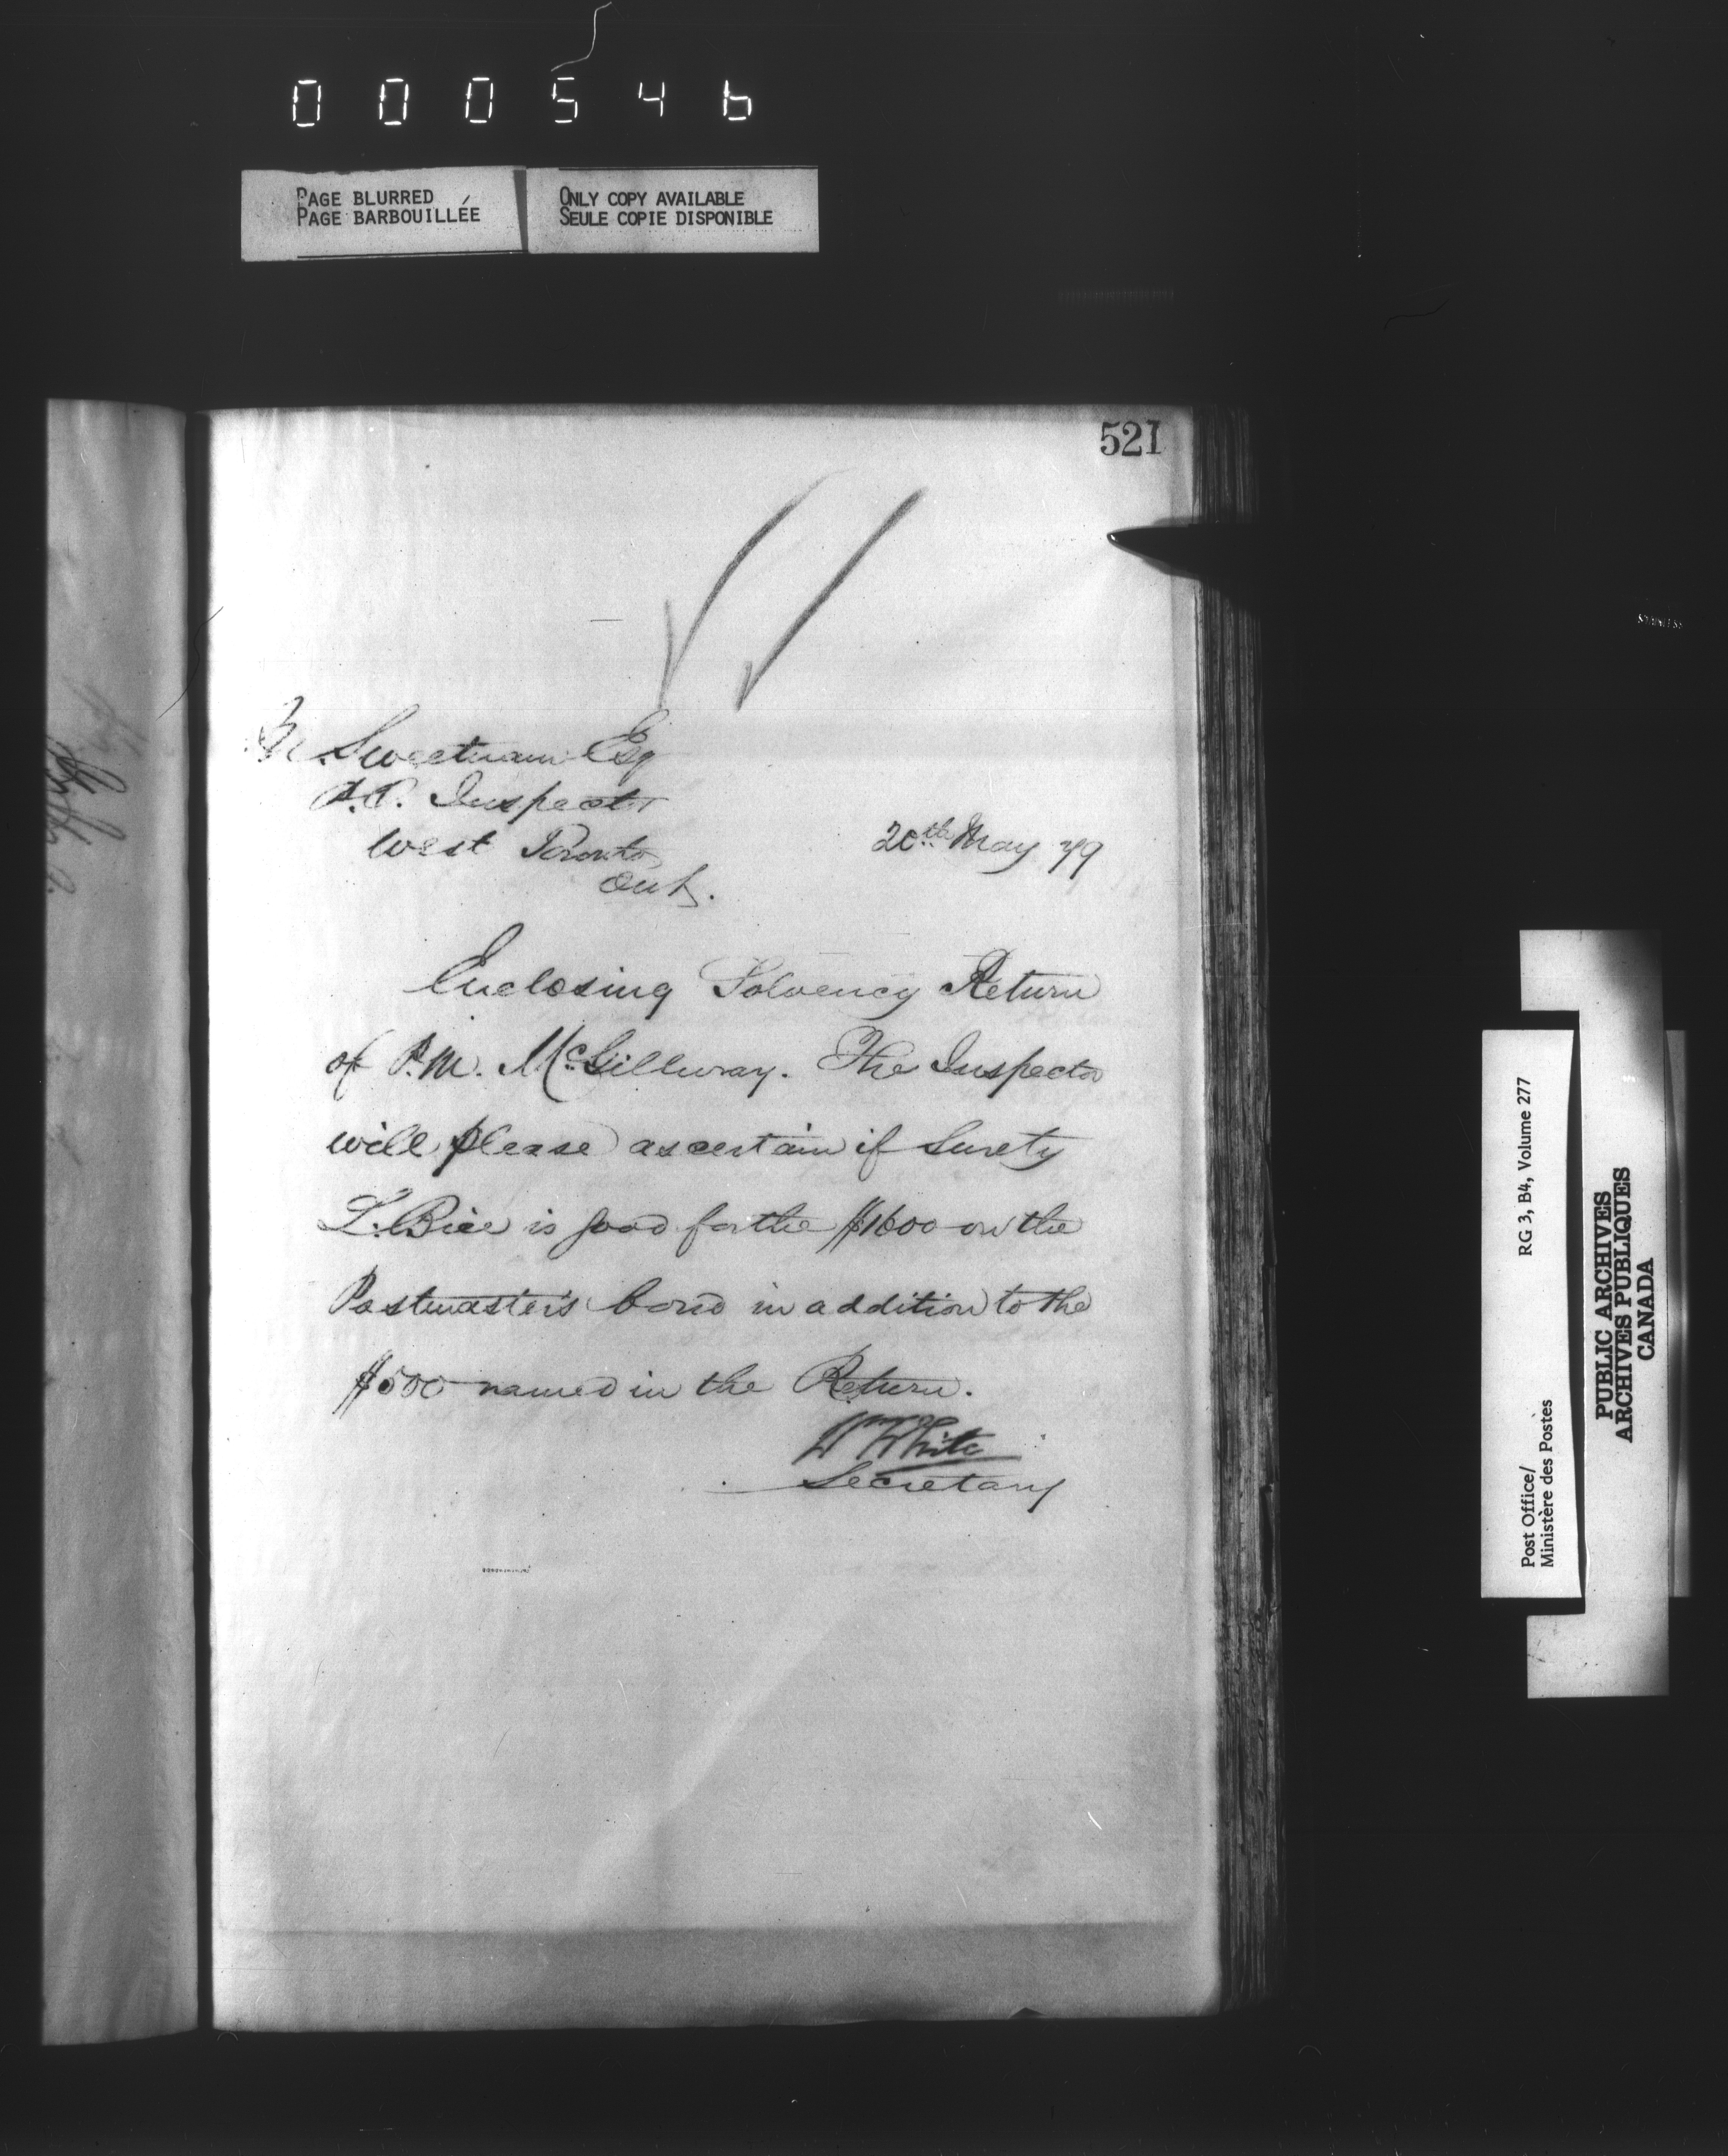 000546
PAGE BLURRED
PAGE BARBOUILLÉE
ONLY COPY AVAILABLE
SEULE COPIE DISPONIBLE
521
M. Sweetnam Esq
P.O. Inspector
West Toronto
Ont.
20th May 79
Enclosing Solvency Return
of P.M. McGillivray. The Inspector
will please ascertain if Surety
L. Bice is good for the $1600 on the
Postmaster's bond in addition to the
$500 named in the Return.
W White
Secretary
Post Office/ RG 3, B4, Volume 277
Ministère des Postes
PUBLIC ARCHIVES
ARCHIVES PUBLIQUES
CANADA